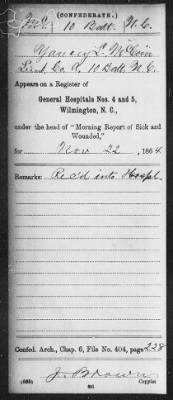 (CONFEDERATE.)
McC 10 Batt. N.C.
Yancey L. McCoin
Lieut Co. A, 10 Batt. N.C.
Appears on a Register of
General Hospitals Nos. 4 and 5,
Wilmington, N. C.,
under the head of "Morning Report of Sick and
Wounded,"
for Nov 22, 1864
Remarks: Rec'd into Hospl.
Confed. Arch., Chap. 6, File No. 404, page 228
J. Brown
Copyist